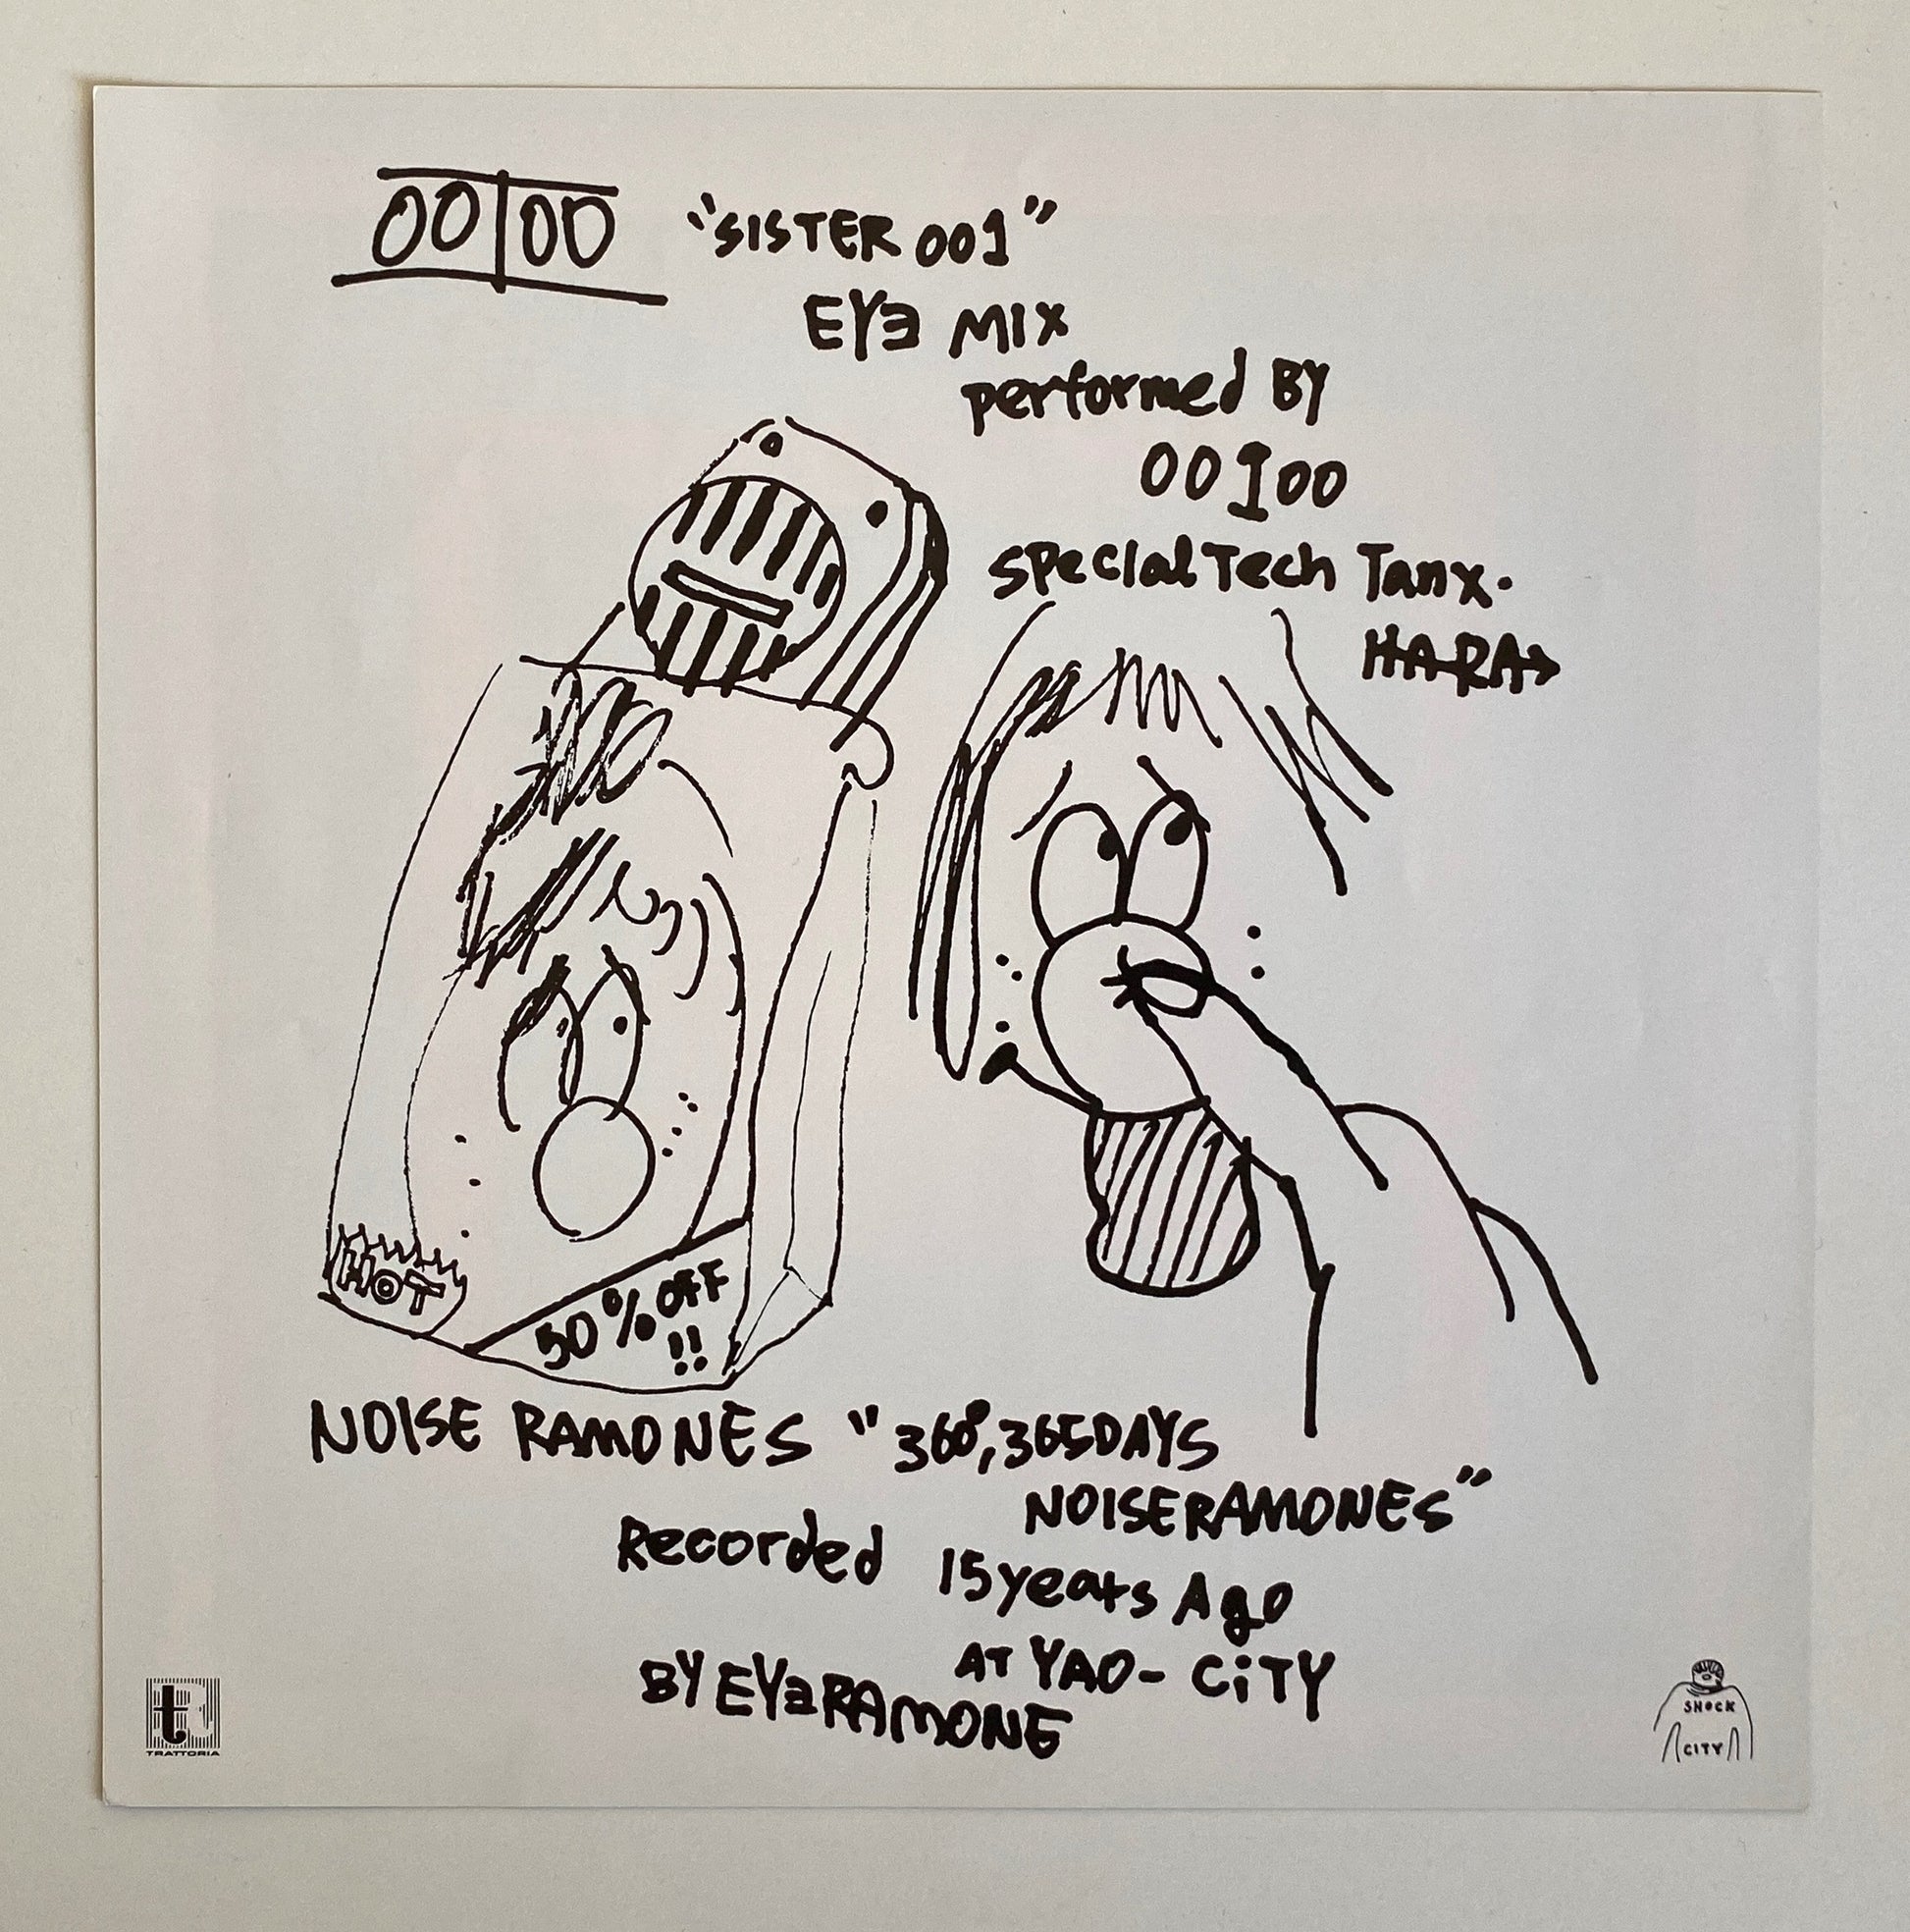 00|00 "SISTER 001"
EYƎ MIX
performed BY
00I00
SPecIal Tech Tanx.
HARA→
HOT
50% OFF
!!
NOISE RAMONES "360°,365DAYS
NOISERAMONES"
Recorded 15years Ago
AT YAO-CiTY
BY EYƎRAMONE
t
TRATTORIA
SHOCK
CITY